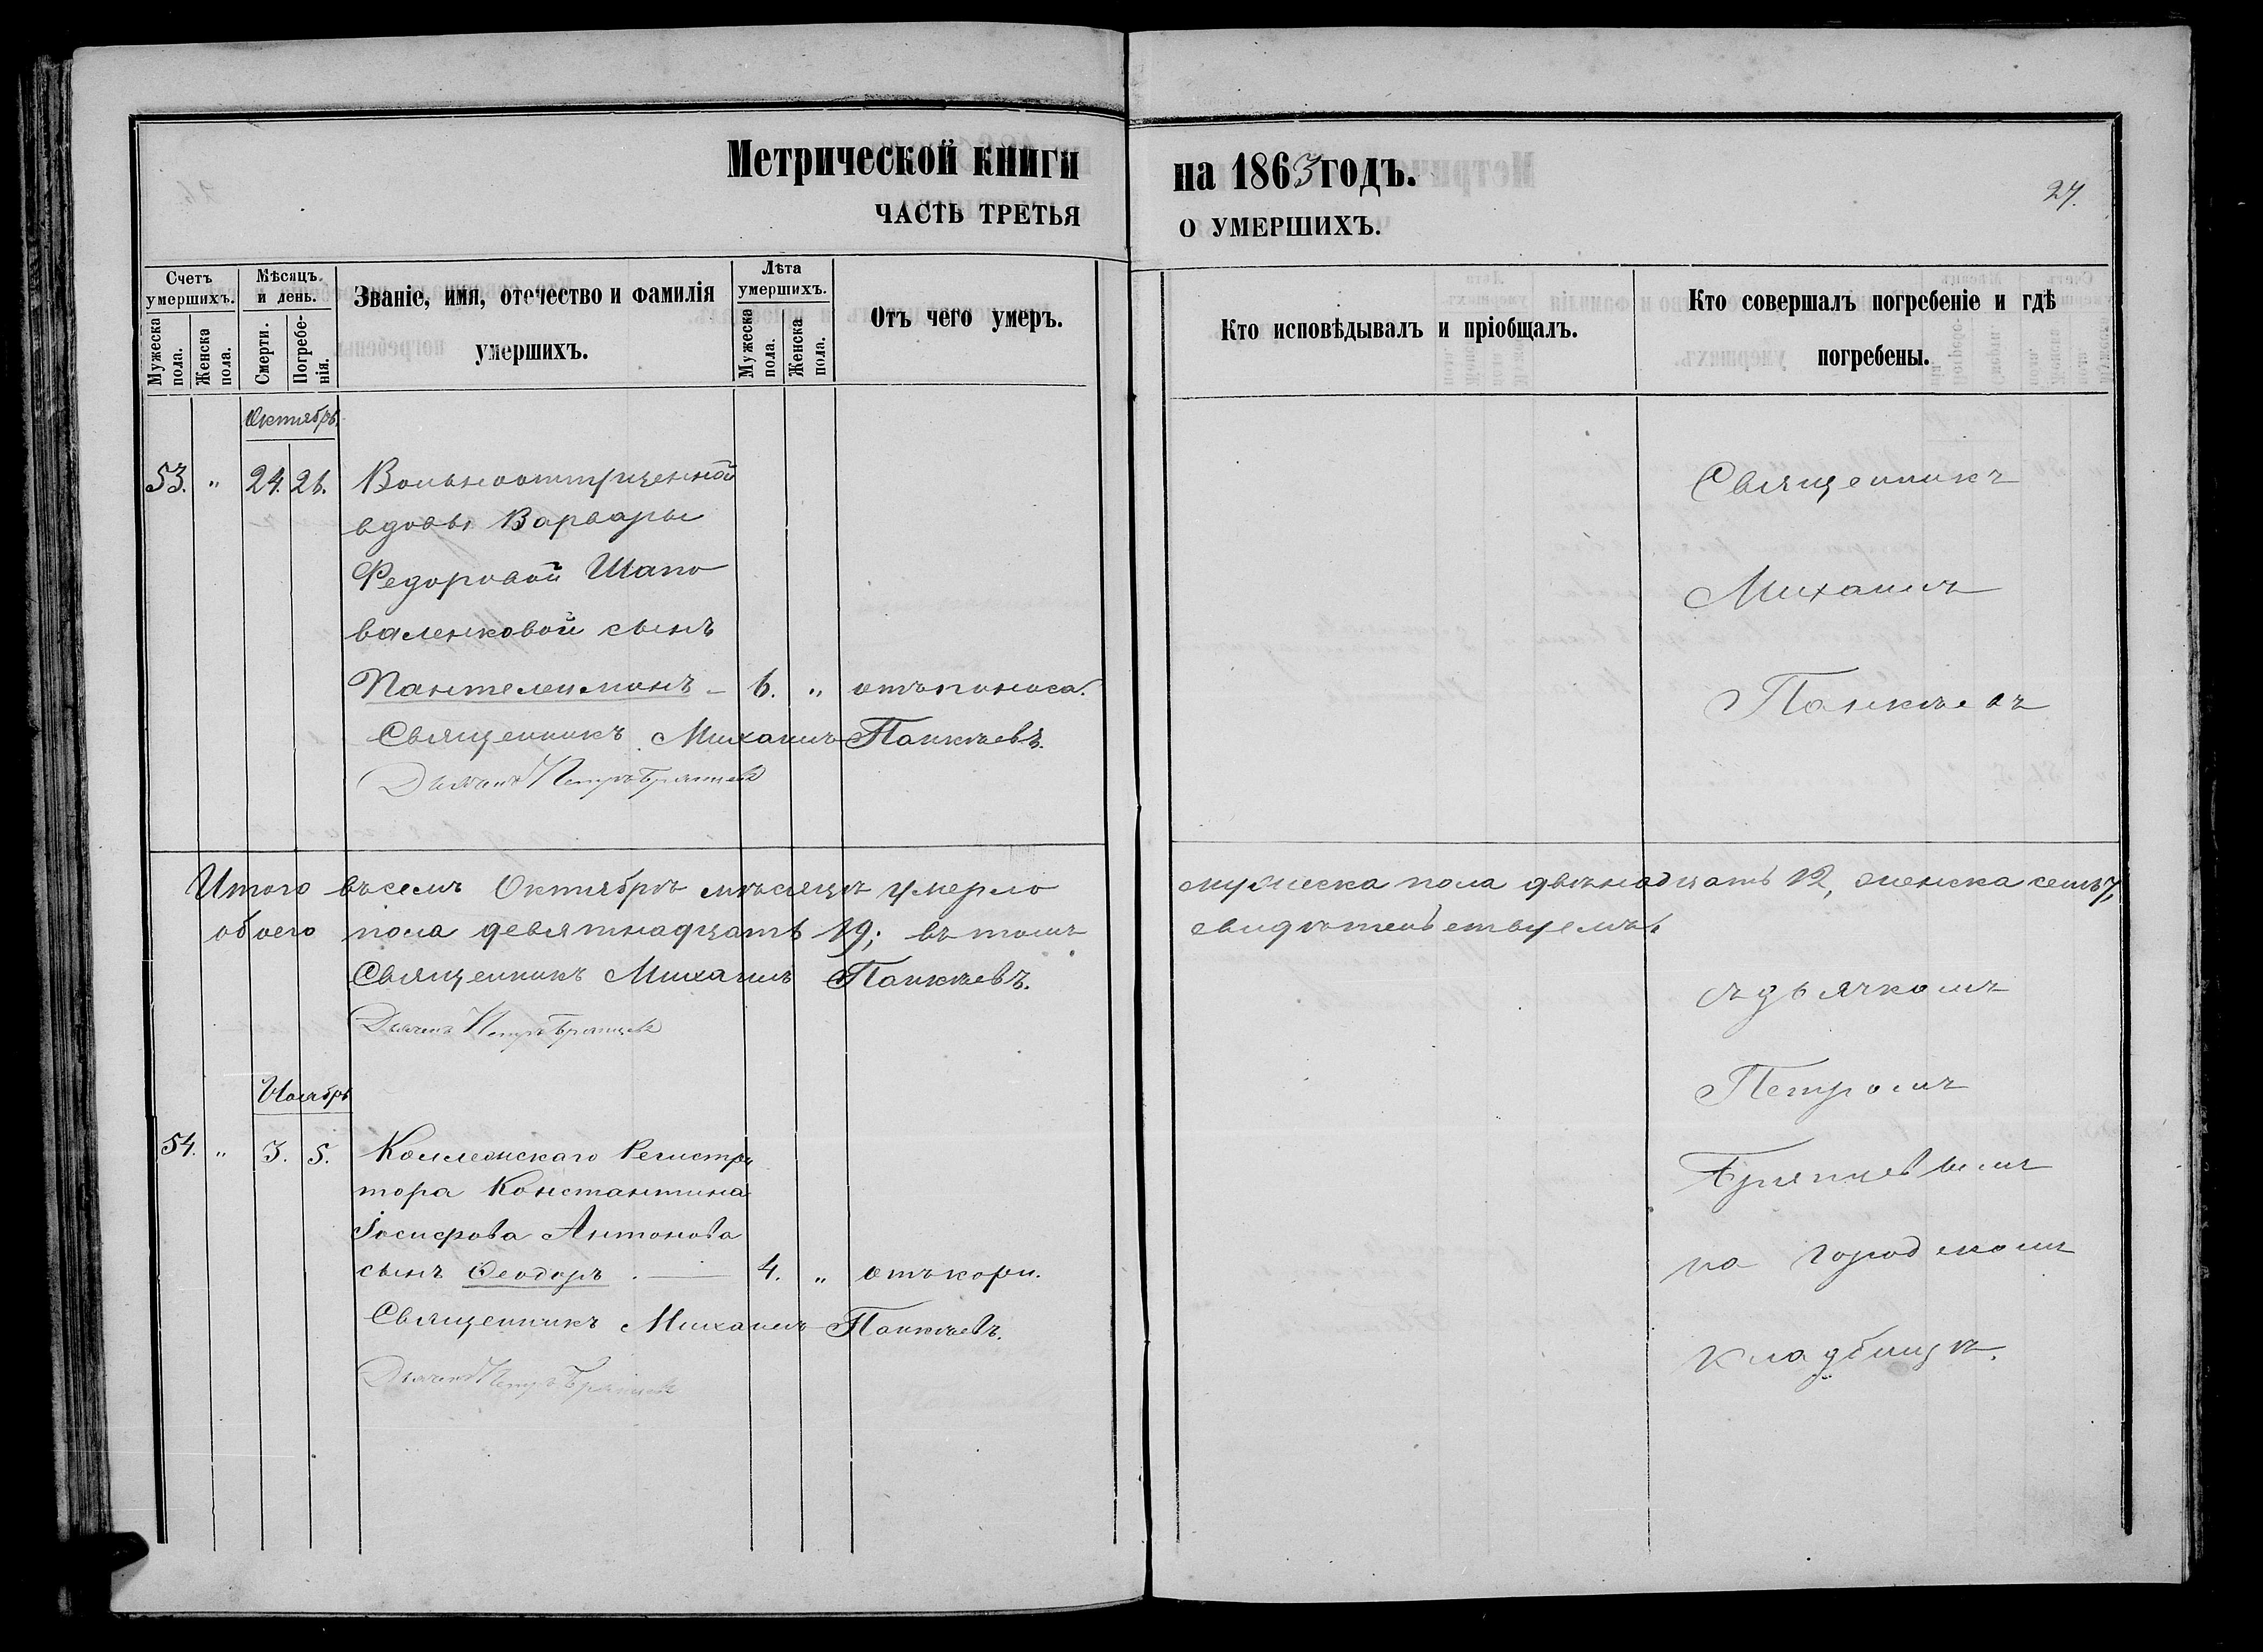 Метрической книги
ЧАСТЬ ТРЕТЬЯ
Счетъ умершихъ.
Мужеска пола.
Женска пола.
Мѣсяцъ и день.
Смерти.
Погребе-
нія.
Званіе, имя, отечество и фамилія
умершихъ.
Лѣта умершихъ.
Мужеска пола.
Женска пола.
Отъ чего умеръ.
Октябрь.
53. " 24. 26. Вольноотпущенной
вдовы Варвары
Федоровой Шапо
валенковой сынъ
Пантелеимонъ – 6. " отъ поноса.
Священникъ Михаилъ Панкѣевъ.
Дьячокъ Петръ Брянцевъ
Итого въ семъ Октябрѣ мѣсяцѣ умерло
обоего пола девятнадцать 19; въ томъ
Священникъ Михаилъ Панкѣевъ.
Дьячекъ Петръ Брянцевъ
Ноябрь
54. " 3. 5. Коллежскаго Регистра
тора Константина
Іосифова Антонова
сынъ Ѳеодоръ. — 4. " отъ кори.
Священникъ Михаилъ Панкѣевъ.
Дьячекъ Петръ Брянцевъ
на 1863 годъ.
О УМЕРШИХЪ.
27.
Кто исповѣдывалъ и пріобщалъ.
Кто совершалъ погребеніе и гдѣ
погребены.
Священникъ
Михаилъ
Панкѣевъ
мужеска пола двѣнадцать 12, женска семь 7,
свидѣтельствуемъ.
съ дьячкомъ
Петромъ
Брянцевымъ
на городскомъ
кладбищѣ.